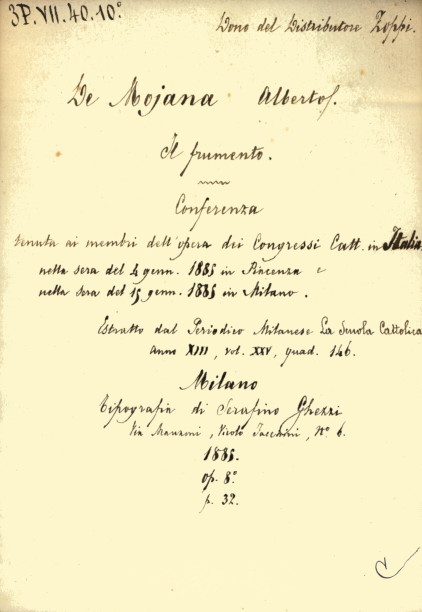 3P.VII.40.10°
Dono del Distributore Zoppi.
De Mojana Alberto f.
Il frumento.
Conferenza
tenuta ai membri dell'opera dei Congressi Catt. in Italia
nella sera del 4 genn. 1885 in Piacenza e
nella sera del 15 genn. 1885 in Milano.
Estratto dal Periodico Milanese La Scuola Cattolica
Anno XIII, vol. XXV, quad. 146.
Milano
Tipografia di Serafino Ghezzi
Via Manzoni, Vicolo Facchini, N° 6.
1885.
op. 8°
p. 32.